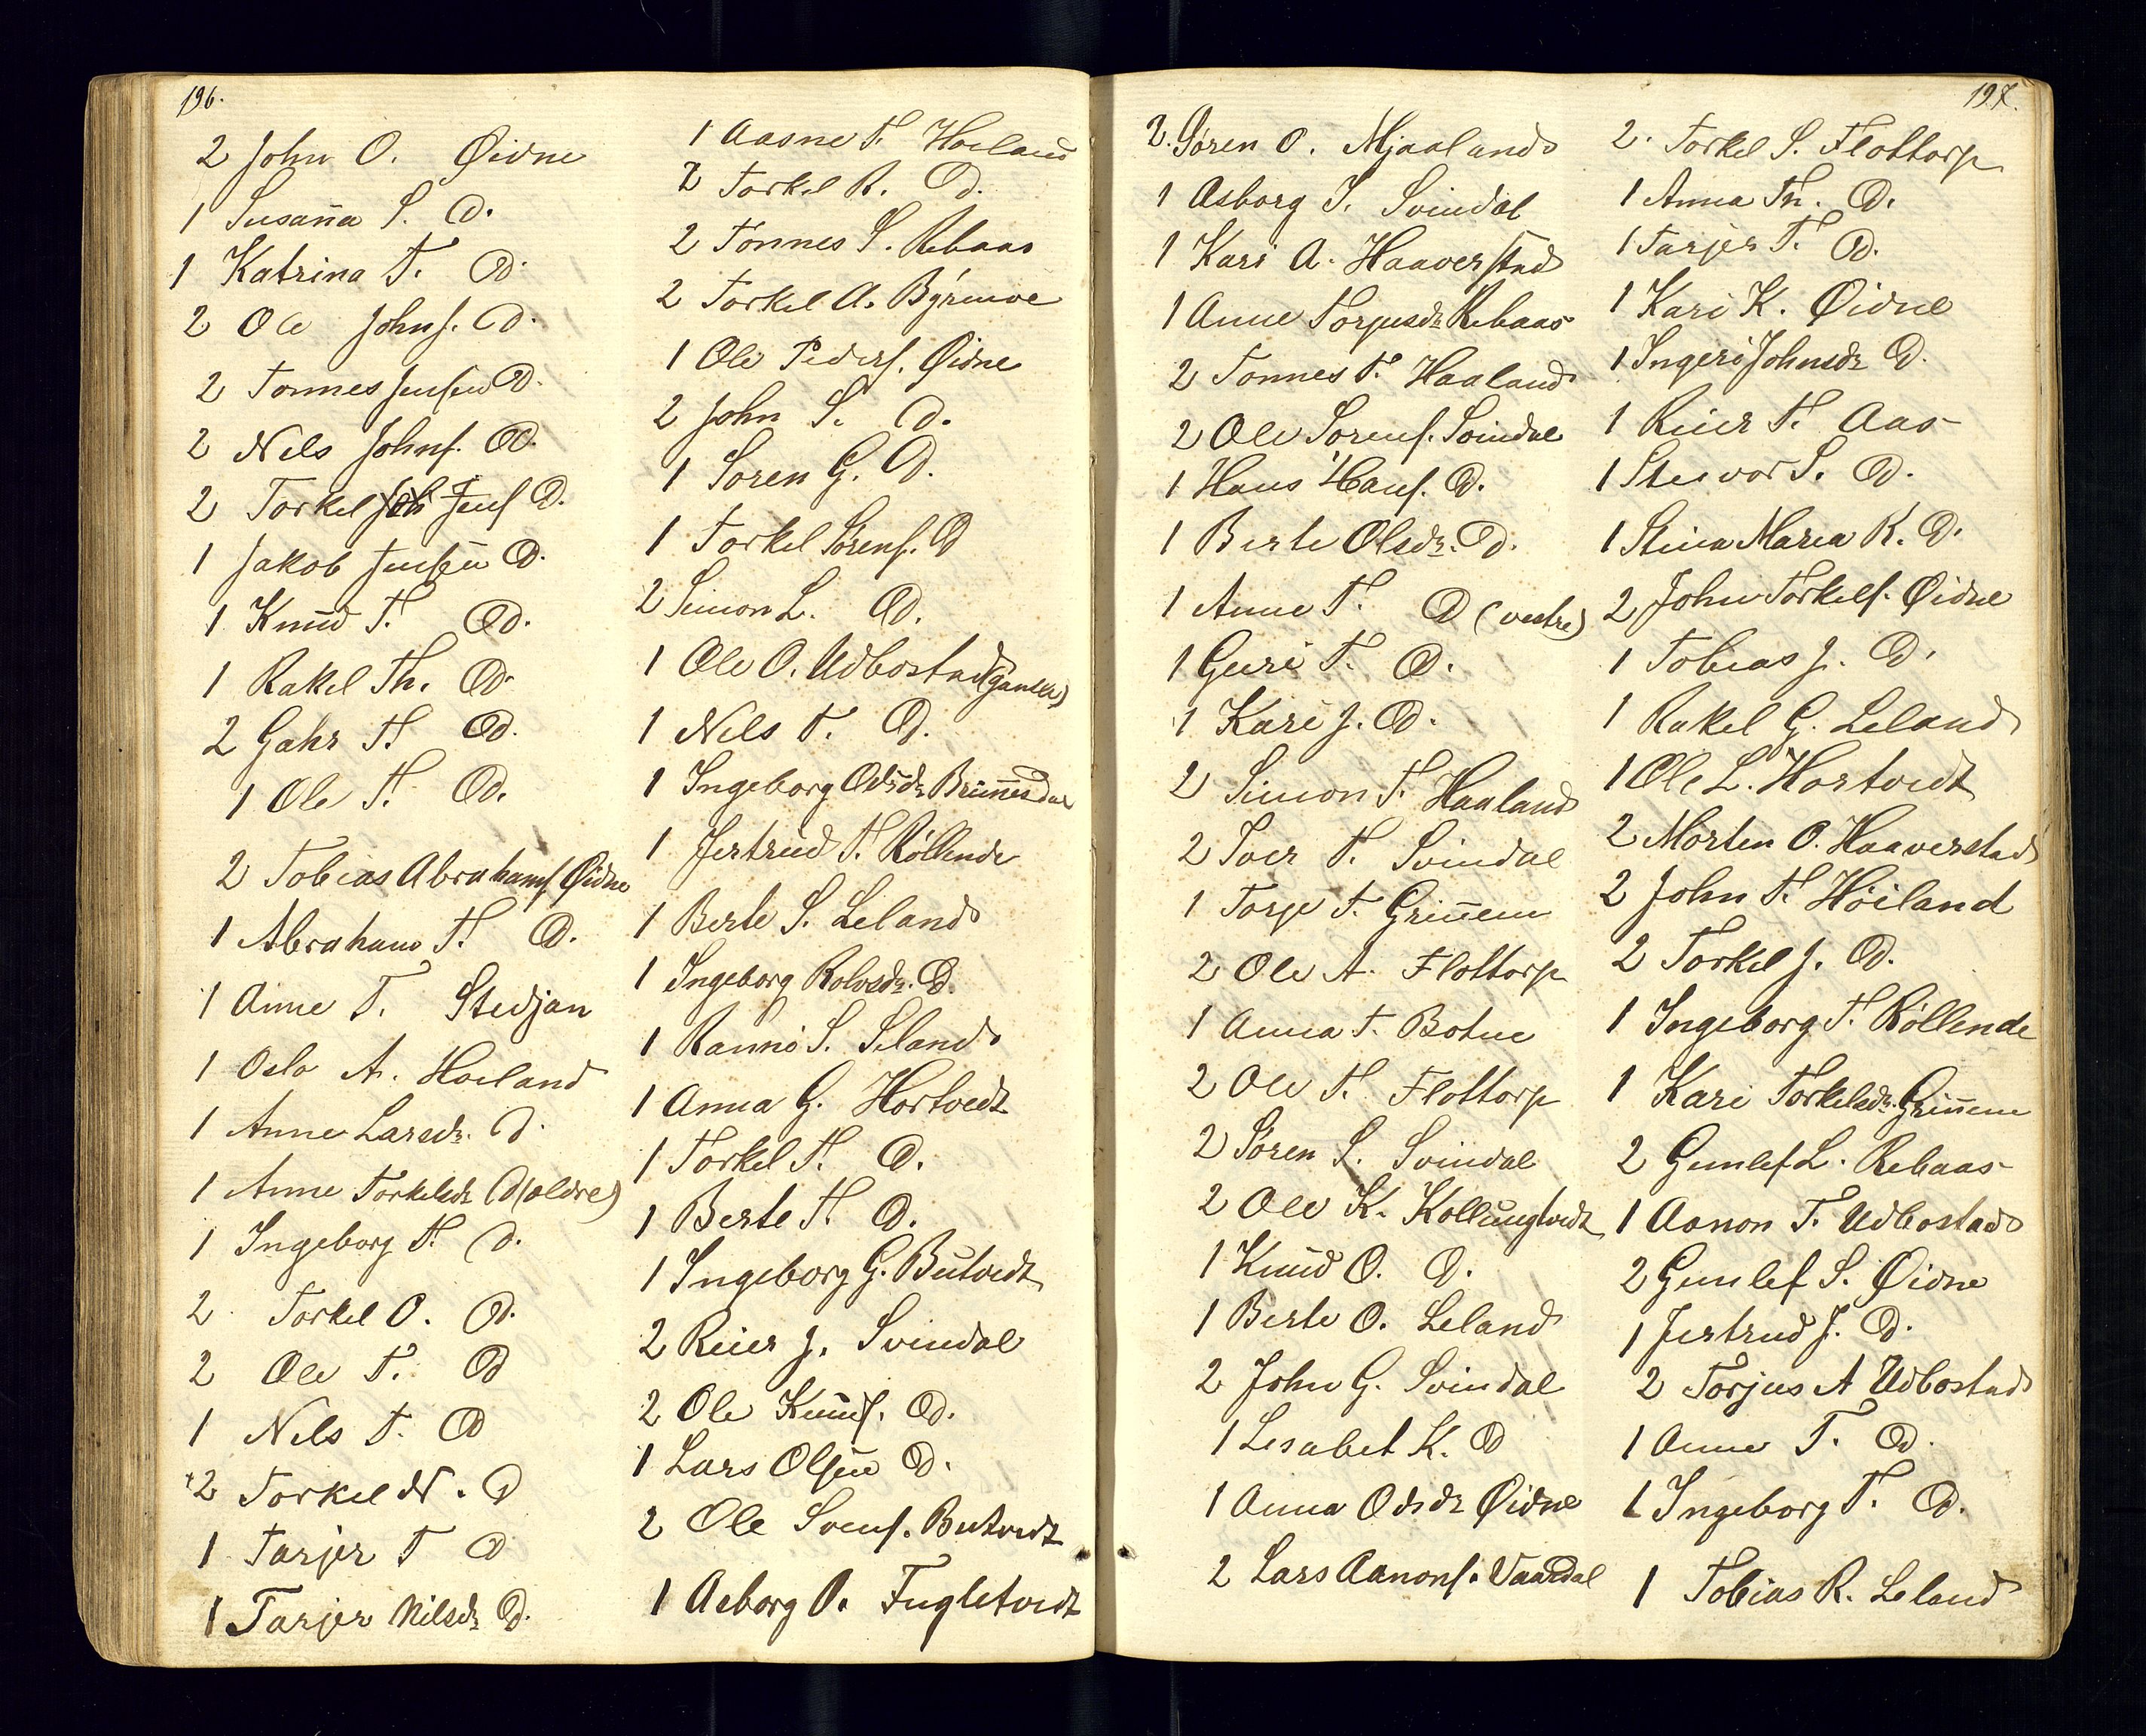 196.
2 John O. Øidne
1 Susan̄a S. D.
1 Katrina T. D.
2 Ole Johns. D.
2 Tonnes Jensen D.
2 Nels Johns. D.
2 Torkel Jens D.
1 Jakob Jensen D.
1 Knud T. D.
1 Rakel Th. D.
2 Gahr T. D.
1 Ole T. D.
2 Tobias Abrahams Øidne
1 Abraham T. D.
1 Anne T. Stedjan
1 Oslo A. Hoiland
1 Anne Larsdr. D.
1 Anne Torkelsdr D (oldre)
1 Ingeborg T. D.
2 Torkel O. D.
2 Ole T. D
1 Nels T. D
2 Torkel N. D
1 Tarjer T D
1 Tarjer Nilsdr D.
1 Aasne T. Hoiland
2 Torkel R. D.
2 Tonnes S. Rebaas
2 Torkel A.
1 Ole Peders. Øidne
2 John S. D.
1 Soren G. D.
1 Torkel Sørens. D
2 Simon L. D.
1 Ole O. Udbostad
1 Nels T. D.
1 Ingeborg Odsdr Brin̄esdal
1 Jertrud T. Røllende
1 Berte S. Leland
1 Ingeborg Rolvsdr. D.
1 Ranni S. Seland
1 Anna G. Hortvedt
1 Torkel T. D.
1 Berte T. D.
1 Ingeborg G. Butvedt
2 Reier J. Svindal
2 Ole Knuds. D.
1 Lars Olsen D.
2 Ole Svens. Butvedt
1 Asborg O. Fugletvedt
197.
2. Søren O. Mjaaland
1 Asborg S. Svindal
1 Kari A. Haaverstad
1 Anne Torjusdr Rebaas
2 Tonnes T. Haaland
2 Ole Sorens. Svindal
1 Hans Hans. D.
1 Berte Olsdr. D.
1 Anne T. D (vestre)
1 Guri T. D.
1 Kari J. D.
2 Simon T. Haaland
2 Iver T. Svindal
1 Torje T. Grin̄em
2 Ole A. Flottorp
1 Anna T. Botne
2 Ole T. Flottorp
2 Søren S. Svindal
2 Ole K. Kollungtvedt
1 Knud O. D.
1 Berte O. Leland
2 John G. Svindal
1 Lisabet K. D
1 Anna Odsdr Øidne
2 Lars Aanons. Vaardal
2. Torkel S. Flottorp
1 Anna Th. D.
1 Tarjer T. D.
1 Kari K. Øidne
1 Ingeri Johnsdr D.
1 Reier T. Aas
1 Steivor S. D.
1 Stina Maria R. D.
2 John Torkels. Øidne
1 Tobias J. D.
1 Rakel G. Leland
1 Ole L. Hortvedt
2 Morten O. Haaverstad
2 John T. Höiland
2 Torkel J. D.
1 Ingeborg T. Röllende
1 Kari Torkelsdr. Grin̄em
2 Gunlef L. Rebaas
1 Aanon T. Udbostad
2 Gunlef S. Øidne
1 Jertrud J. D.
2 Torjus A Udbostad
1 Anne T. D.
1 Ingeborg T. D.
1 Tobias R. Leland